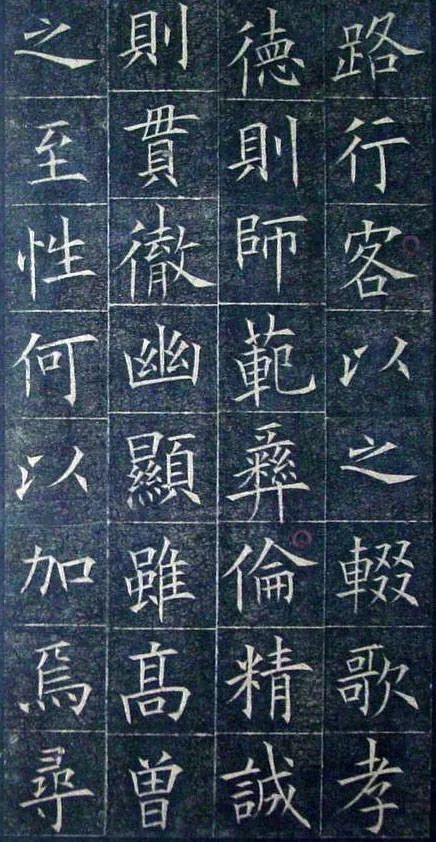 路行客以之輟歌孝
德則師範彝倫精誠
則貫徹幽顯雖髙曾
之至性何以加焉尋